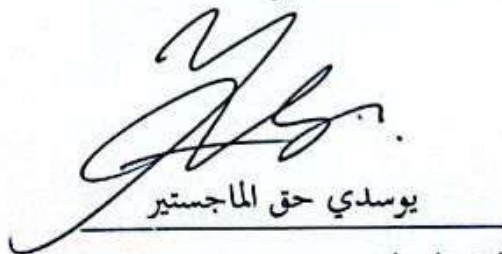 يوسدي حق الماجستير